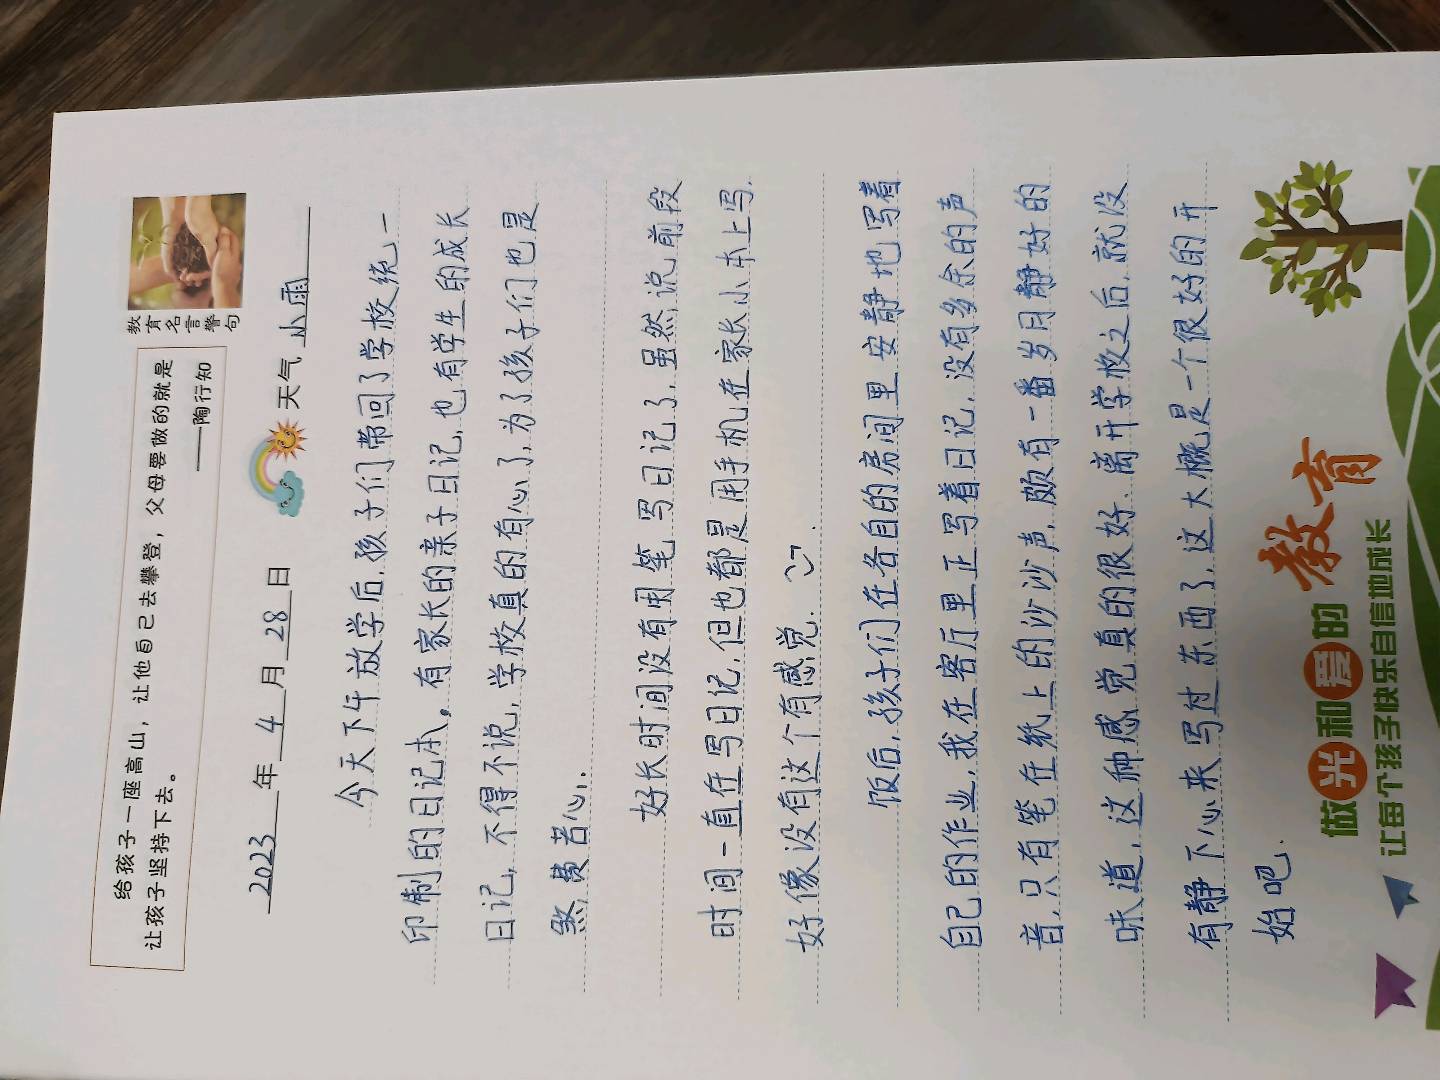 给孩子一座高山，让他自己去攀登，父母要做的就是
让孩子坚持下去。
——陶行知
教育名言警句
2023年4月28日 天气 小雨
今天下午放学后,孩子们带回了学校统一
印制的日记本。有家长的亲子日记,也有学生的成长
日记,不得不说,学校真的有心了,为了孩子们也是
煞费苦心.
好长时间没有用笔写日记了,虽然说前段
时间一直在写日记,但也都是用手机在家长小本上写.
好像没有这个有感觉.
饭后,孩子们在各自的房间里安静地写着
自己的作业,我在客厅里正写着日记,没有多余的声
音,只有笔在纸上的沙沙声,颇有一番岁月静好的
味道,这种感觉真的很好.离开学校之后,就没
有静下心来写过东西了,这大概是一个很好的开
始吧.
做光和爱的教育
让每个孩子快乐自信地成长